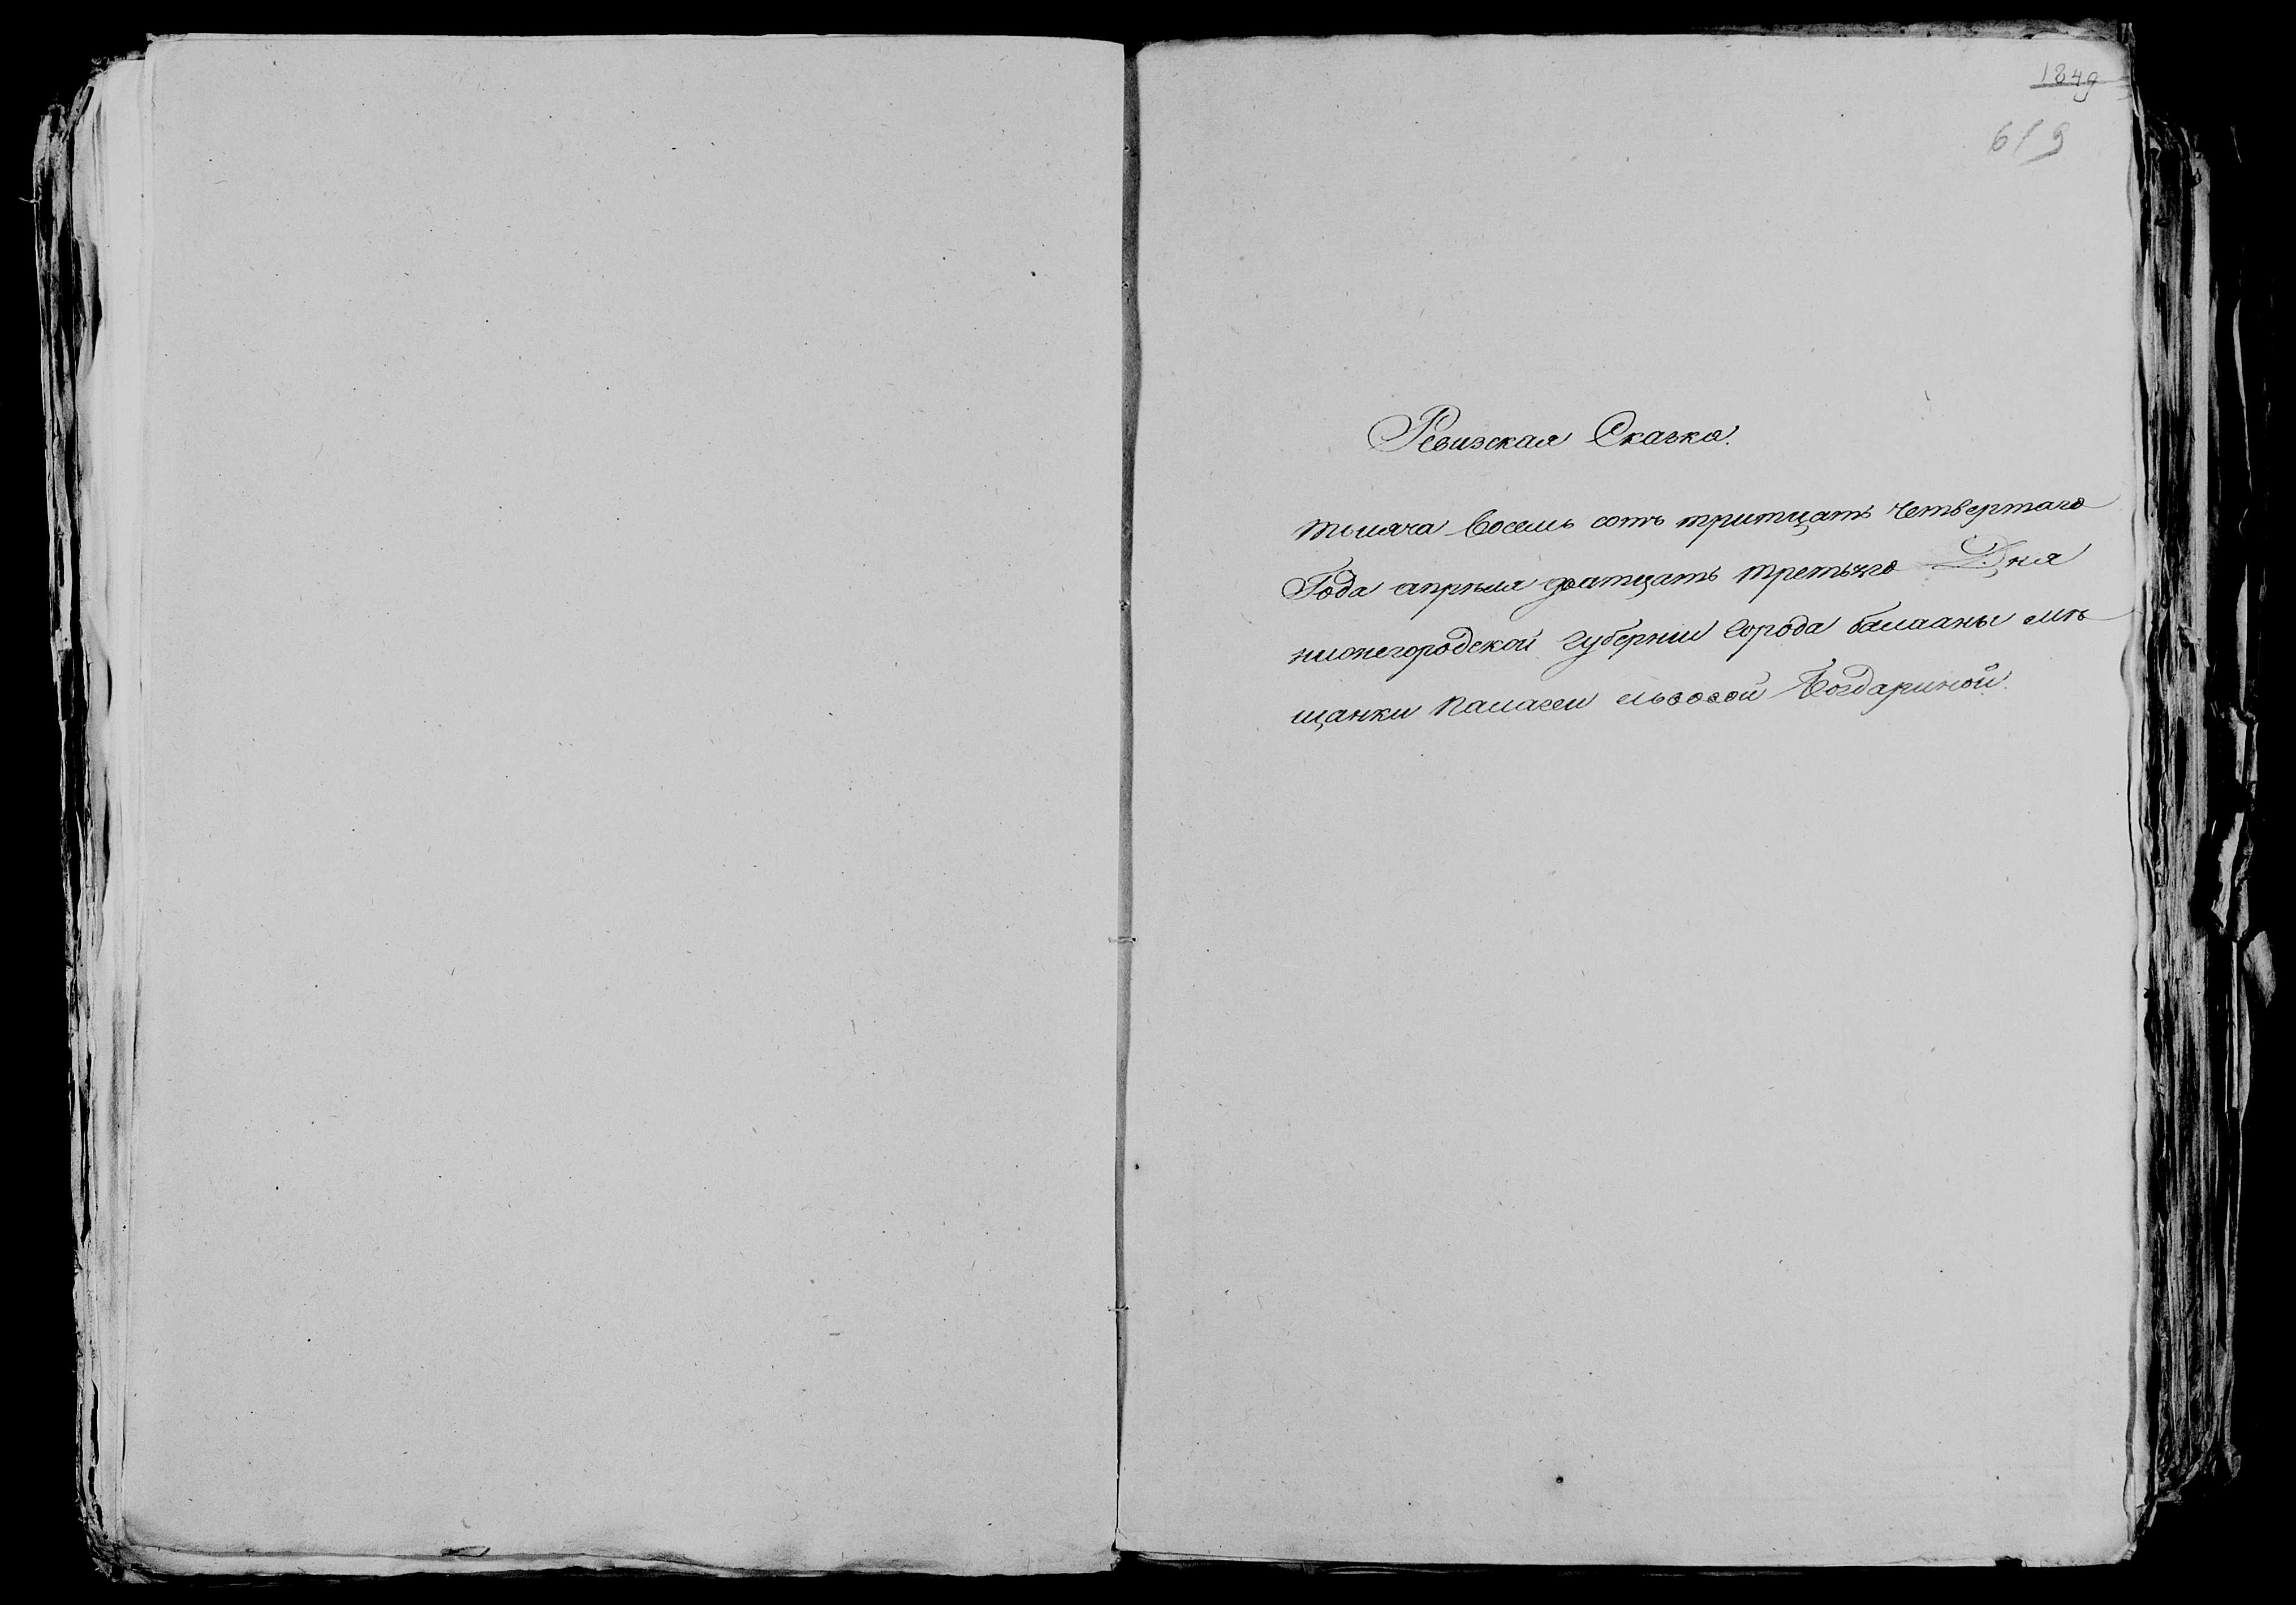 1849
619
Ревизская Сказка.
тысяча восемь сотъ тритцать четвертаго
Года апреля дватцать третьяго Дня
нижегородской губернии города балаханы мѣ
щанки палагеи львовой Богдариной.